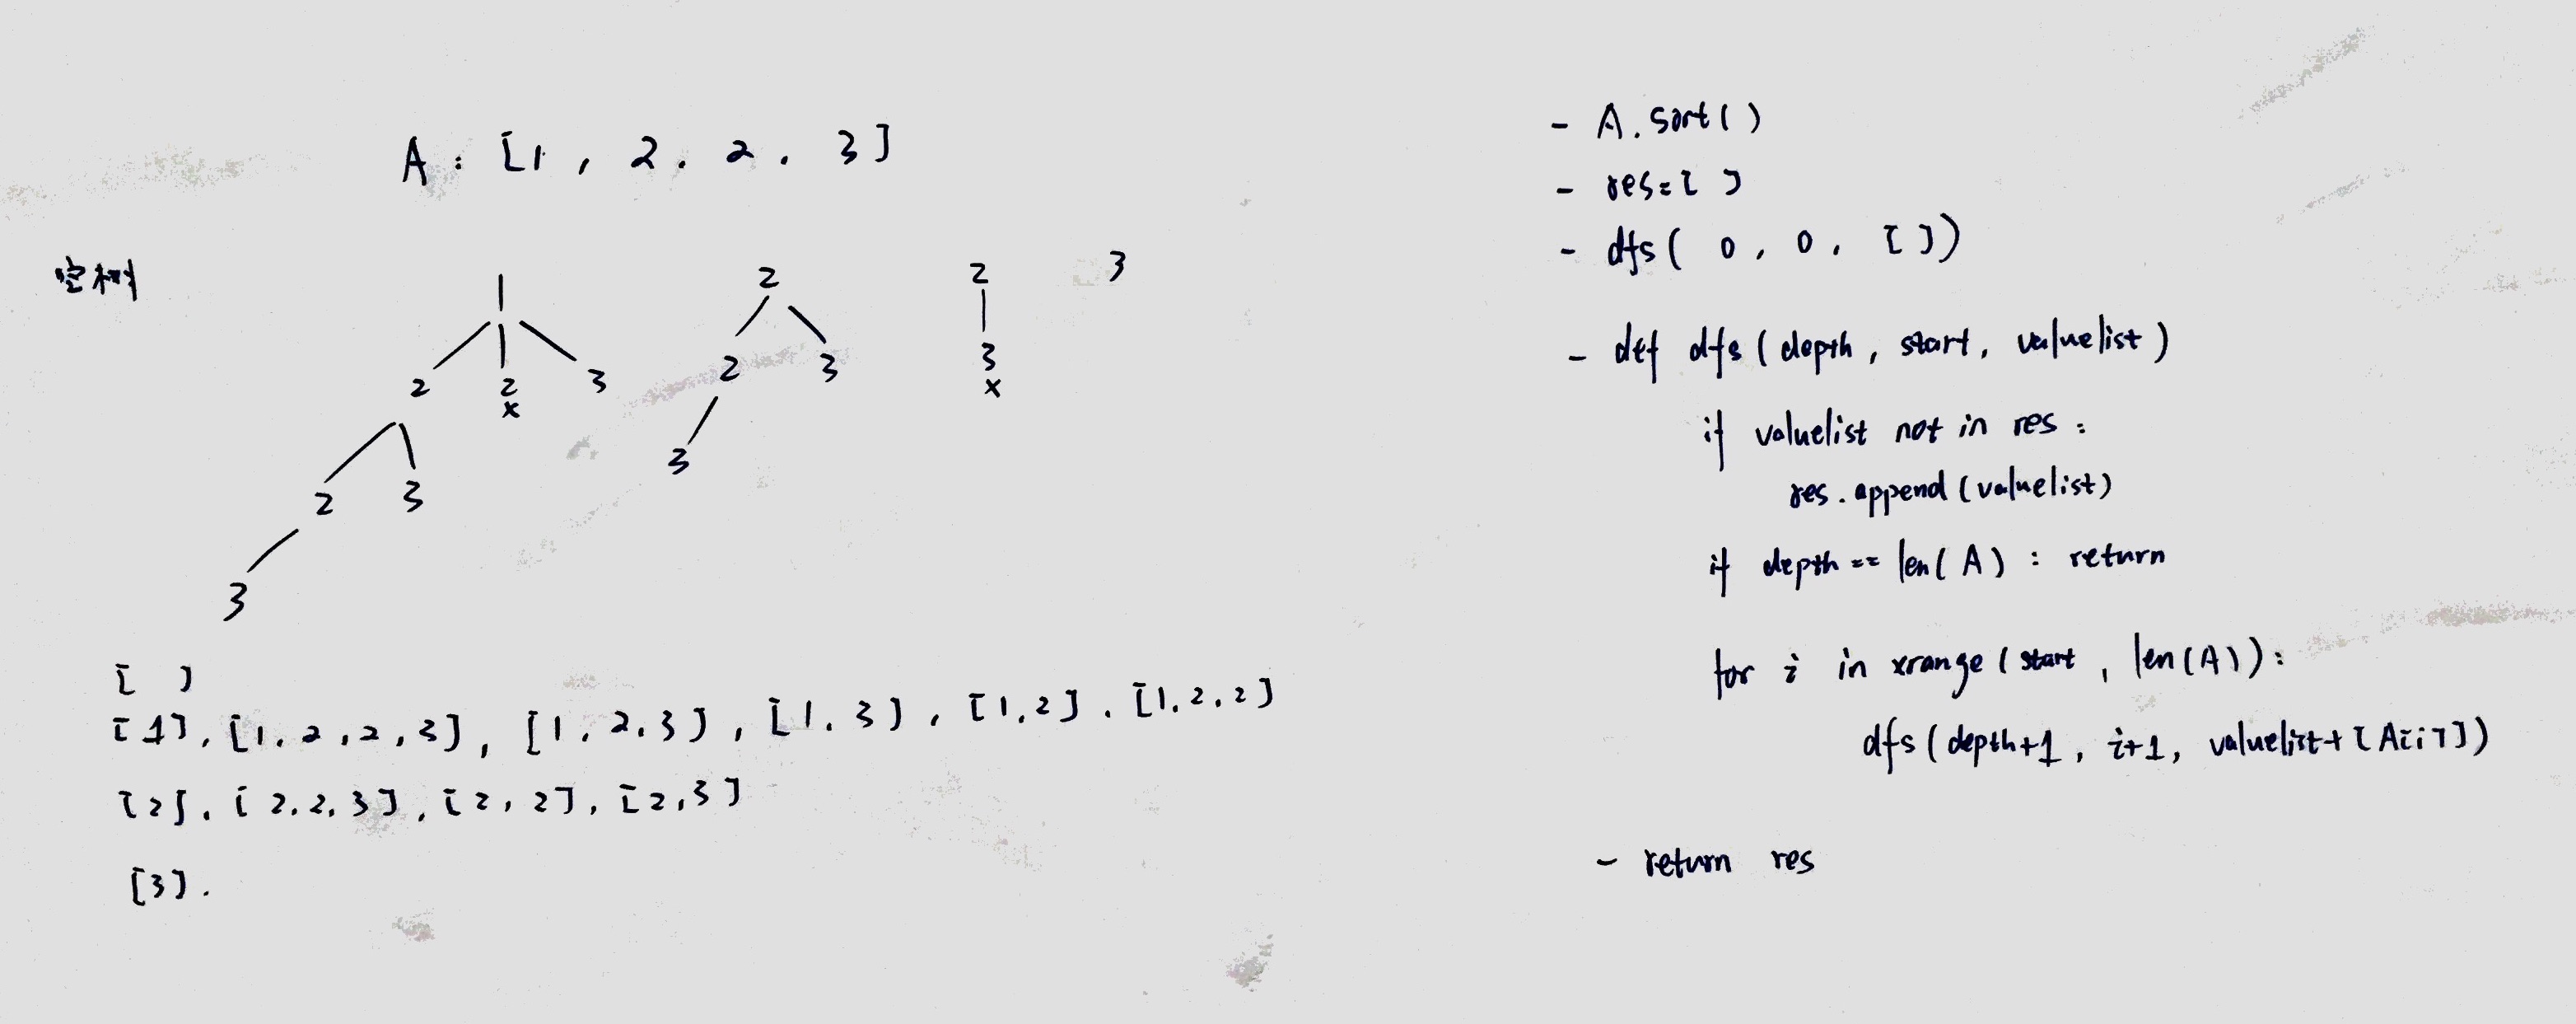 A : [1 , 2 . 2 . 3]
空树
1 2 2 3
2 2 x 3 2 3 3 x
2 3 3
3
[ ]
[1], [1. 2 , 2 , 3], [1 , 2. 3] , [1. 3] , [1,2] . [1. 2. 2]
[2]. [2. 2. 3] , [2 , 2], [2,3]
[3] .
- A. sort( )
- res=[ ]
- dfs( 0 , 0 , [ ])
- def dfs (depth , start , valuelist )
if valuelist not in res :
res . append (valuelist)
if depth == len( A ) : return
for i in xrange ( start , len(A)) :
dfs ( depth+1 , i+1, valuelist+ [A[i]])
- return res